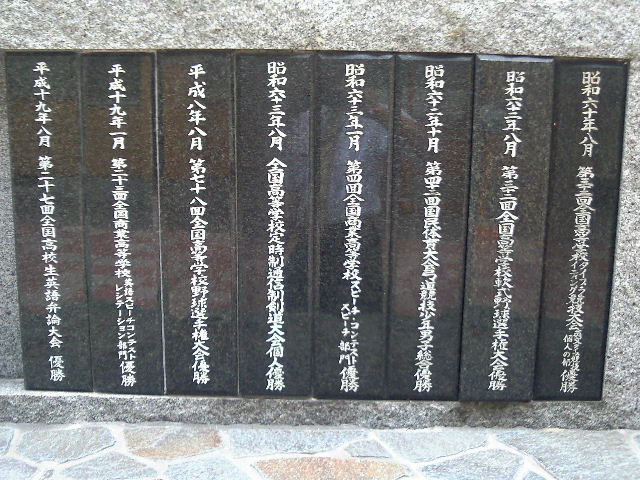 昭和六十年八月 第三十二回全国高等学校タイプライティング競技大会 個人の部 優勝
昭和六十二年八月 第三十二回全国高等学校軟式野球選手権大会優勝
昭和六十二年十月 第四十二回国民体育大会弓道競技少年男子総合優勝
昭和六十三年一月 第四回全国商業高等学校スピーチ・コンテストスピーチ部門 優勝
昭和六十三年八月 全国高等学校定時制通信制剣道大会個人優勝
平成八年八月 第七十八回全国高等学校野球選手権大会優勝
平成十九年一月 第二十三回全国商業高等学校英語スピーチコンテストレシテーション部門 優勝
平成十九年八月 第二十七回全国高校生英語弁論大会 優勝